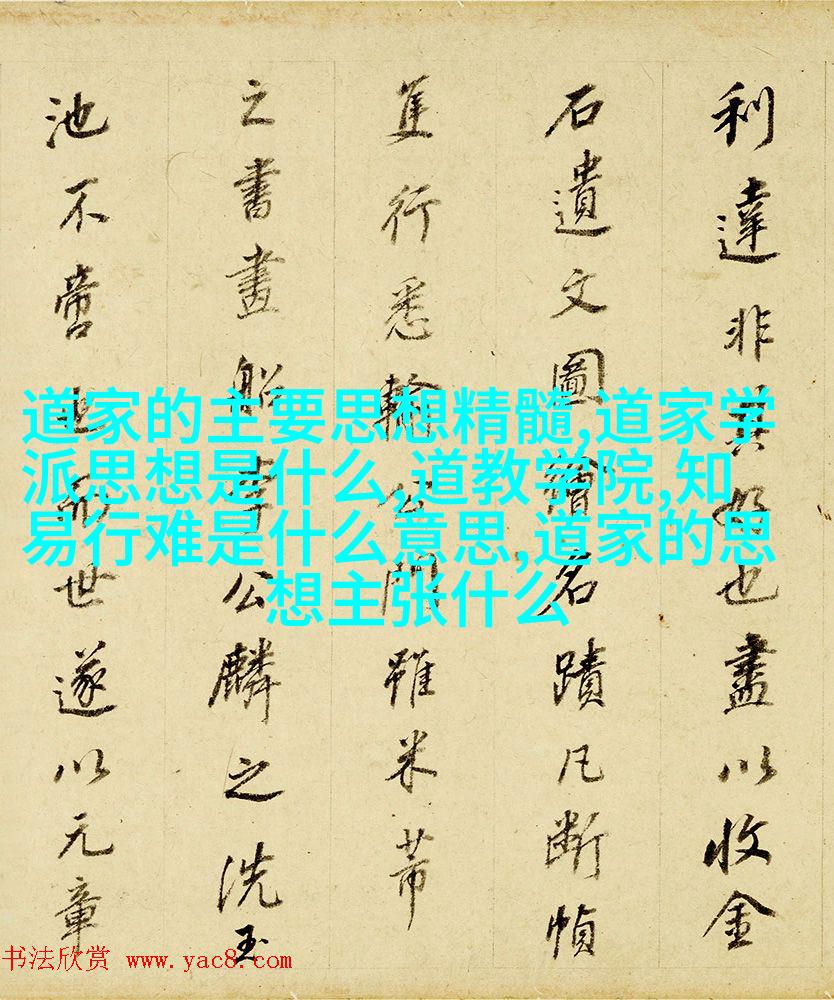 利達非其好也盡以收金
石遺文圖繪名蹟凡斷幀
隻行悉輸公門雖米芾
之書畫船李公麟之洗玉
池不啻也而世遂以元章
道家的主要思想精髓,道家学
派思想是什么,道教学院,知
易行难是什么意思,道家的思
想主张什么
书法欣赏 www.yac8.com